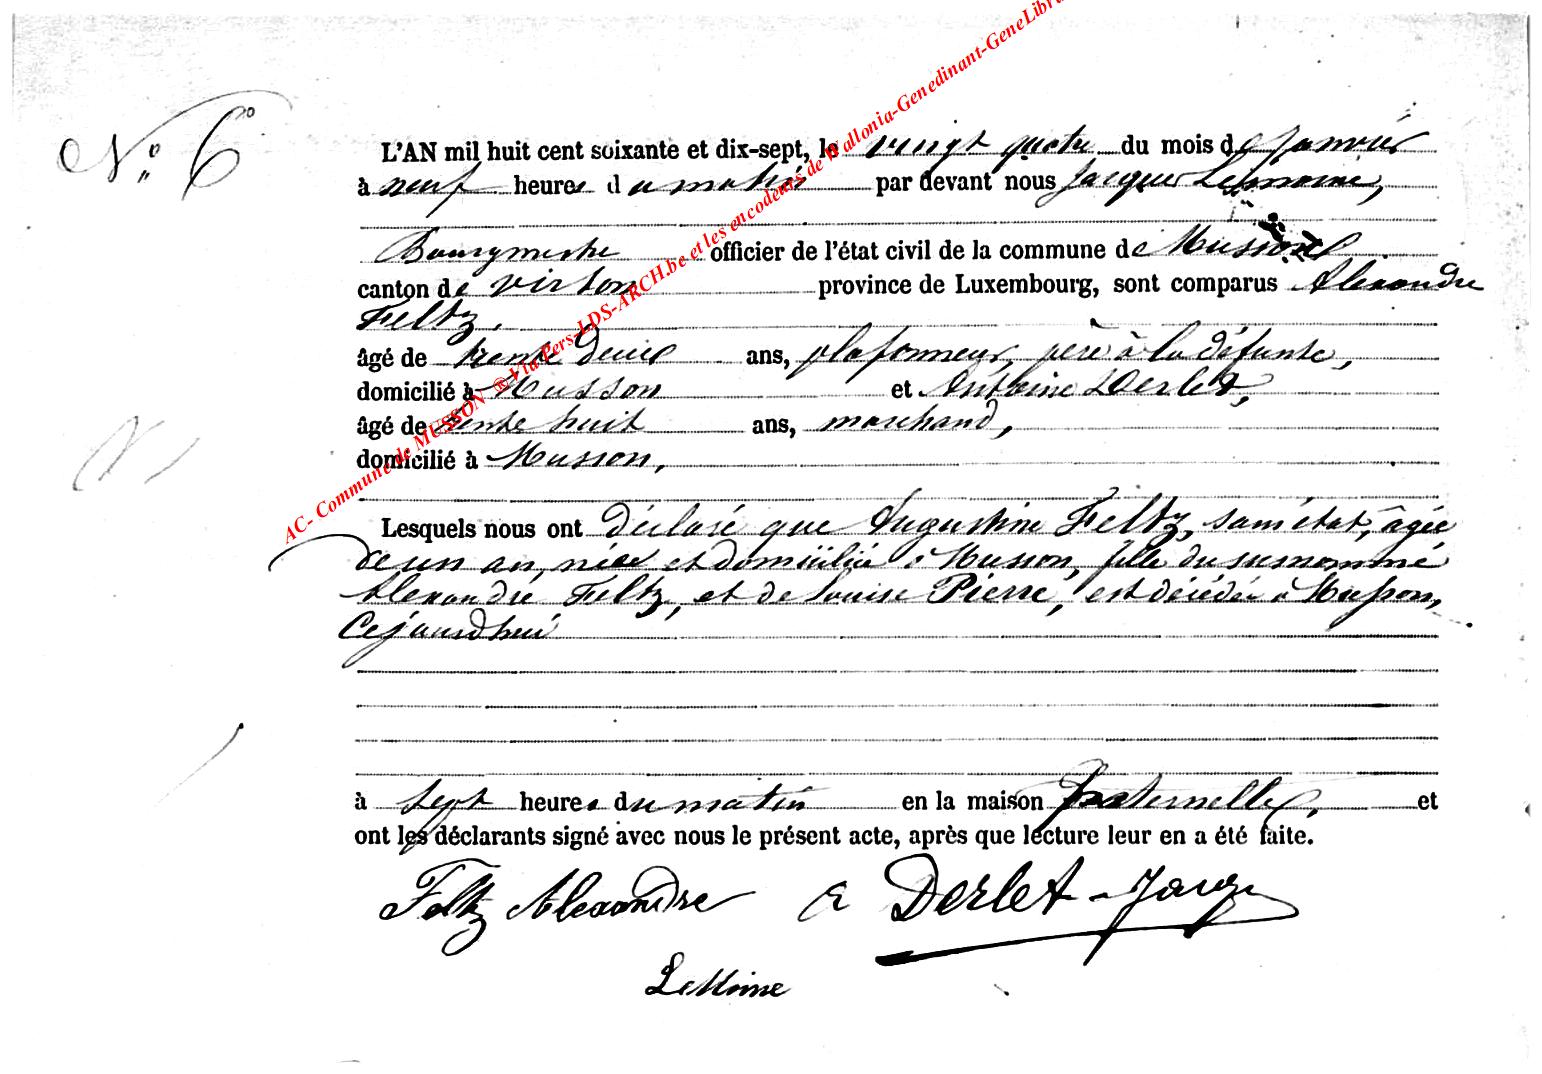 N° 6
L'AN mil huit cent soixante et dix-sept, le vingt quatre du mois de Janvier
à neuf heures du matin par devant nous Jacques Lemoine,
Bourgmestre officier de l'état civil de la commune de Musson
canton de Virton province de Luxembourg, sont comparus Alexandre
Feltz,
âgé de trente deux ans, plafonneur, père à la défunte,
domicilié à Musson et Antoine Derlet,
âgé de trente huit ans, marchand,
domicilié à Musson,
Lesquels nous ont déclaré que Augustine Feltz, sans état, âgée
de un an, née et domiciliée à Musson, fille du surnommé
Alexandre Feltz, et de Louise Pierre, est décédée à Musson,
Cejourd'hui
à sept heures du matin en la maison paternelle, et
ont les déclarants signé avec nous le présent acte, après que lecture leur en a été faite.
Feltz Alexandre a Derlet-
LeMoine
AC- Commune de MUSSON ® Via Pers-LDS-ARCH.be et les encodeurs de Wallonia-Genedinant-GeneLibr